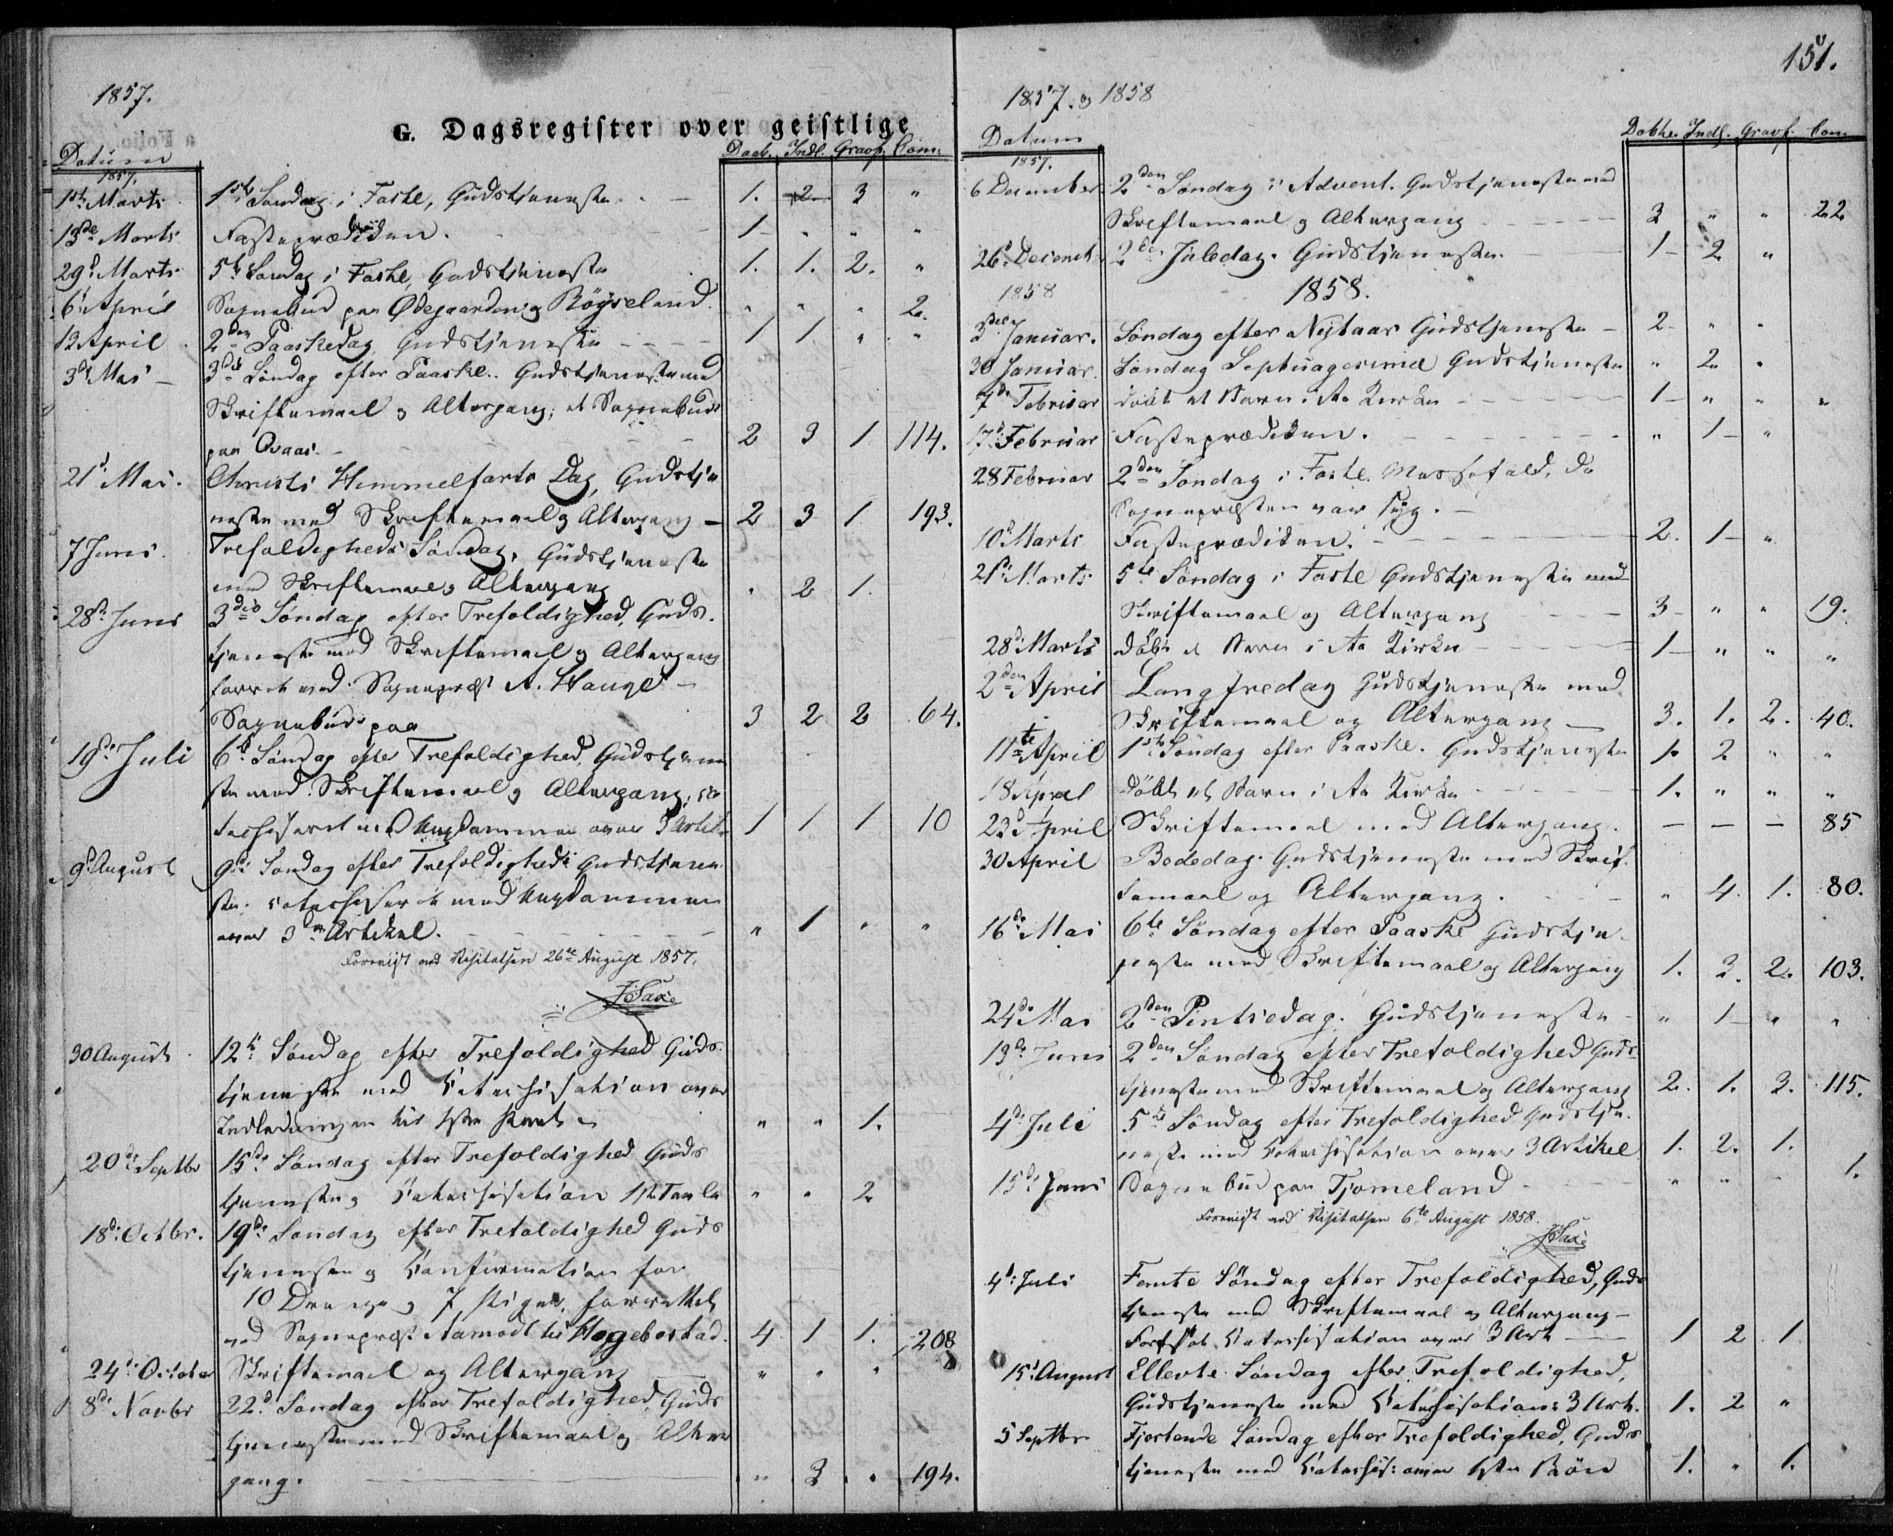 1857.
G. Dagsregister over geistlige
Datum Daab. Indl. Gravf. Com:
1857.
1ste Marts 1ste Søndag i Faste, Gudstjeneste 1. 2 3 "
13de Marts Fasteprædiken. 1 " " "
29d Marts 5te Søndag i Faste, Gudstjeneste 1. 1. 2. "
6 April Sognebud paa Ødegaarden og Røyseland. " " " 2.
13 April 2den Paaskedag Gudstjeneste 1 1 " "
3de Mai 3die Søndag efter Paaske. Gudstjeneste med
Skriftemaal og Altergang; et Sognebud
paa Qvaas. 2 3 1 114.
21d Mai. Christi Himmelfarts Dag, Gudstje
neste med Skriftemaal og Altergang 2 3 1 193.
7 Juni. Trefoldigheds Søndag, Gudstjeneste
med Skriftemaal og Altergang " 2 1.
28d Juni 3die Søndag efter Trefoldighed, Guds-
tjeneste med Skriftemaal og Altergang
forrett. ved Sognepræst A. Hauge
Sognebud paa 3 2 2 64.
19de Juli 6te Søndag efter Trefoldighed, Gudstjene
ste med Skriftemaal og Altergang,
med Ungdommen over 3 Artikel 1 1 1 10
9d August 9de Søndag efter Trefoldighed Gudstjene
ste. Catechiseret med Ungdommen
over 3die Artikel. " 1 " "
Foreviist ved Visitatsen 26de August 1857.
30 August 12te Søndag efter Trefoldighed Guds
tjeneste med Catechisation over
Indledningen til 1ste Part " " 1.
20de Septbr 15de Søndag efter Trefoldighed Guds
tjeneste og Catechisation 1ste Tavle " " 2
18de Octbr. 19de Søndag efter Trefoldighed Guds
tjeneste og Confirmation for
10 Drenge og 7 Piger, forrettet
ved Sognepræst Aamodt til Hægebostad. 4 1 1. 208
24de October Skriftemaal og Altergang " " "
8de Novbr 22d Søndag efter Trefoldighed, Guds
tjeneste med Skriftemaal og Alter
gang. " 3 " 194.
151.
1857. og 1858
Datum Døbte. Indl. Gravf. Com.
1857.
6 December 2den Søndag i Advent. Gudstjeneste med
Skriftemaal og Altergang 3 " " 22
26d Decemb 2den Juledag. Gudstjeneste. 1 2 "
1858 1858.
3die Januar. Søndag efter Nytaar Gudstjeneste 2 " "
30 Januar. Søndag Septuagesima Gudstjeneste " 2 "
7de Februar døbt et Barn i Aa Kirke 1 " " "
17d Februar Fasteprædiken. " 1 "
28 Februar 2den Søndag i Faste. Messefald, da
Sognepresten var syg.
10d Marts Fasteprædiken. 2. 1 "
21de Marts 5te Søndag i Faste Gudstjeneste med
Skriftemaal og Altergang 3 " " 19.
28d Marts døbt et Barn i Aa Kirke 1 " " "
2den April Langfredag Gudstjeneste med
Skriftemaal og Altergang 3. 1. 2. 40.
11te April 1ste Søndag efter Paaske. Gudstjeneste 1. 2 " "
18 April døbt et Barn i Aa Kirke 1. " " "
23d April Skriftemaal med Altergang. — — — 85
30 April Bededag. Gudstjeneste med Skrif-
temaal og Altergang. " 4. 1. 80.
16de Mai 6te Søndag efter Paaske Gudstje-
neste med Skriftemaal og Altergang 1. 3. 2. 103.
24de Mai 2den Pintsedag. Gudstjeneste " 1 " "
13de Juni 2den Søndag efter Trefoldighed Guds-
tjeneste med Skriftemaal og Altergang 2. 1. 3. 115.
4de Juli 5te Søndag efter Trefoldighed Gudstje-
neste med Catechisation over 3 Artikel 1. 2. 1.
15de Juni Sognebud paa Tjomeland " " " 1.
Foreviist ved Visitatsen 6te August 1858.
4d: Juli Femte Søndag efter Trefoldighed, Guds
tjeneste med Skriftemaal og Altergang
Fortsat Catechisation over 3 Art 1 2 1
15d August Ellevte Søndag efter Trefoldighed,
Gudstjeneste med Catechisation: 3 Art. 1. 2 "
5 Septbr Fjortende Søndag efter Trefoldighed, Guds
tjeneste med Catechis: over 1ste Bøn 1. " 1.